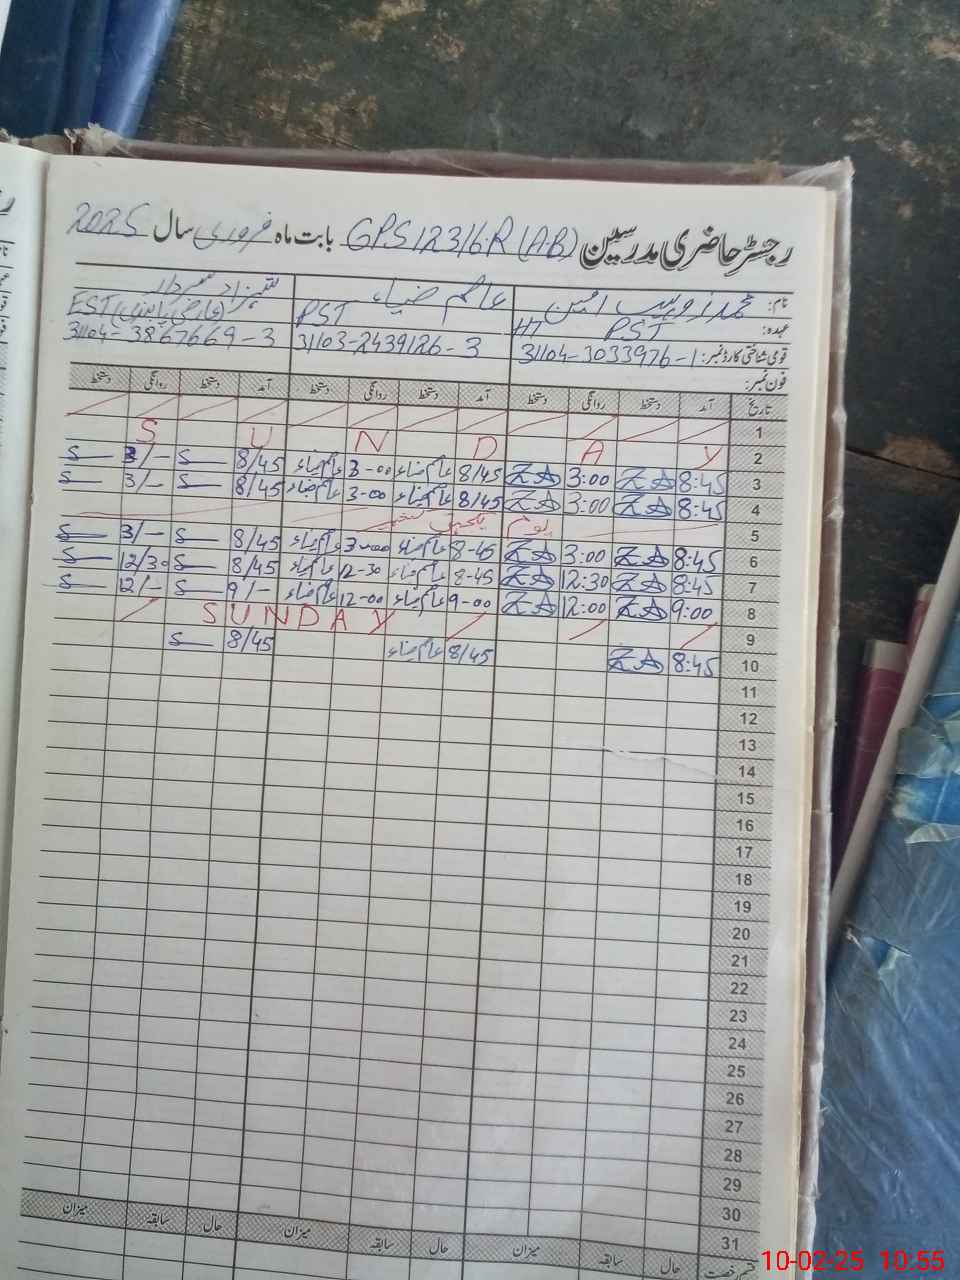 رجسٹر حاضری مدرسین GPS 123/6.R (A.B) بابت ماہ فروری سال 2025
نام: محمد زوہیب امین عاصم ضیاء شہزاد سردار
عہدہ: HT PST PST EST (عارضی پابندی)
قومی شناختی کارڈ نمبر: 31104-3033976-1 31103-2439126-3 31104-3867669-3
فون نمبر:
تاریخ آمد دستخط روانگی دستخط آمد دستخط روانگی دستخط آمد دستخط روانگی دستخط
1
2 S U N D A Y
3 8:45 ZA 3:00 ZA 8/45 عاصم ضیاء 3-00 عاصم ضیاء 8/45 S 3/- S
4 8:45 ZA 3:00 ZA 8/45 عاصم ضیاء 3-00 عاصم ضیاء 8/45 S 3/- S
5 یوم یکجہتی کشمیر
6 8:45 ZA 3:00 ZA 8-45 عاصم ضیاء 3-00 عاصم ضیاء 8/45 S 3/- S
7 8:45 ZA 12:30 ZA 8-45 عاصم ضیاء 12-30 عاصم ضیاء 8/45 S 12/30 S
8 9:00 ZA 12:00 ZA 9-00 عاصم ضیاء 12-00 عاصم ضیاء 9/- S 12/- S
9 SUNDAY
10 8:45 ZA 8/45 عاصم ضیاء 8/45 S
11
12
13
14
15
16
17
18
19
20
21
22
23
24
25
26
27
28
29
30
31
قسم رخصت حال سابقہ میزان حال سابقہ میزان حال سابقہ میزان
10-02-25 10:55